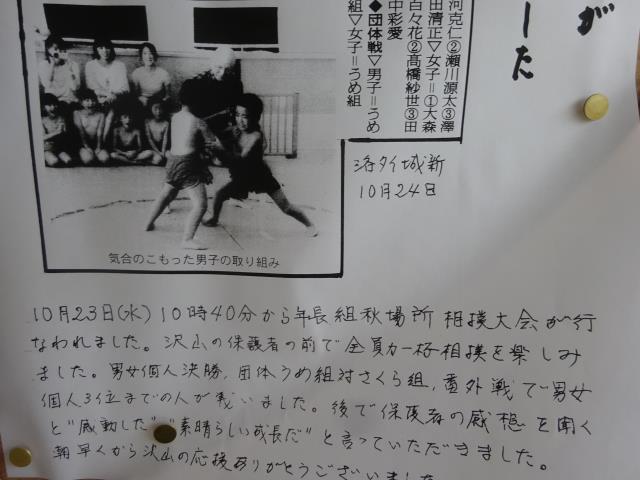 が
した
河克仁②瀬川源太③澤
田清正▽女子＝①大森
百々花②髙橋紗世③田
中彩愛
◆団体戦▽男子＝うめ
組▽女子＝うめ組
洛タイ城新
10月24日
気合のこもった男子の取り組み
10月23日(水)10時40分から年長組秋場所 相撲大会が行
なわれました。沢山の保護者の前で全員力一杯相撲を楽しみ
ました。男女個人決勝、団体うめ組対さくら組、番外戦で男女
個人3位までの人が戦いました。後で保護者の感想を聞く
と"感動した""素晴らしい成長だ"と言っていただきました。
朝早くから沢山の応援ありがとうございました